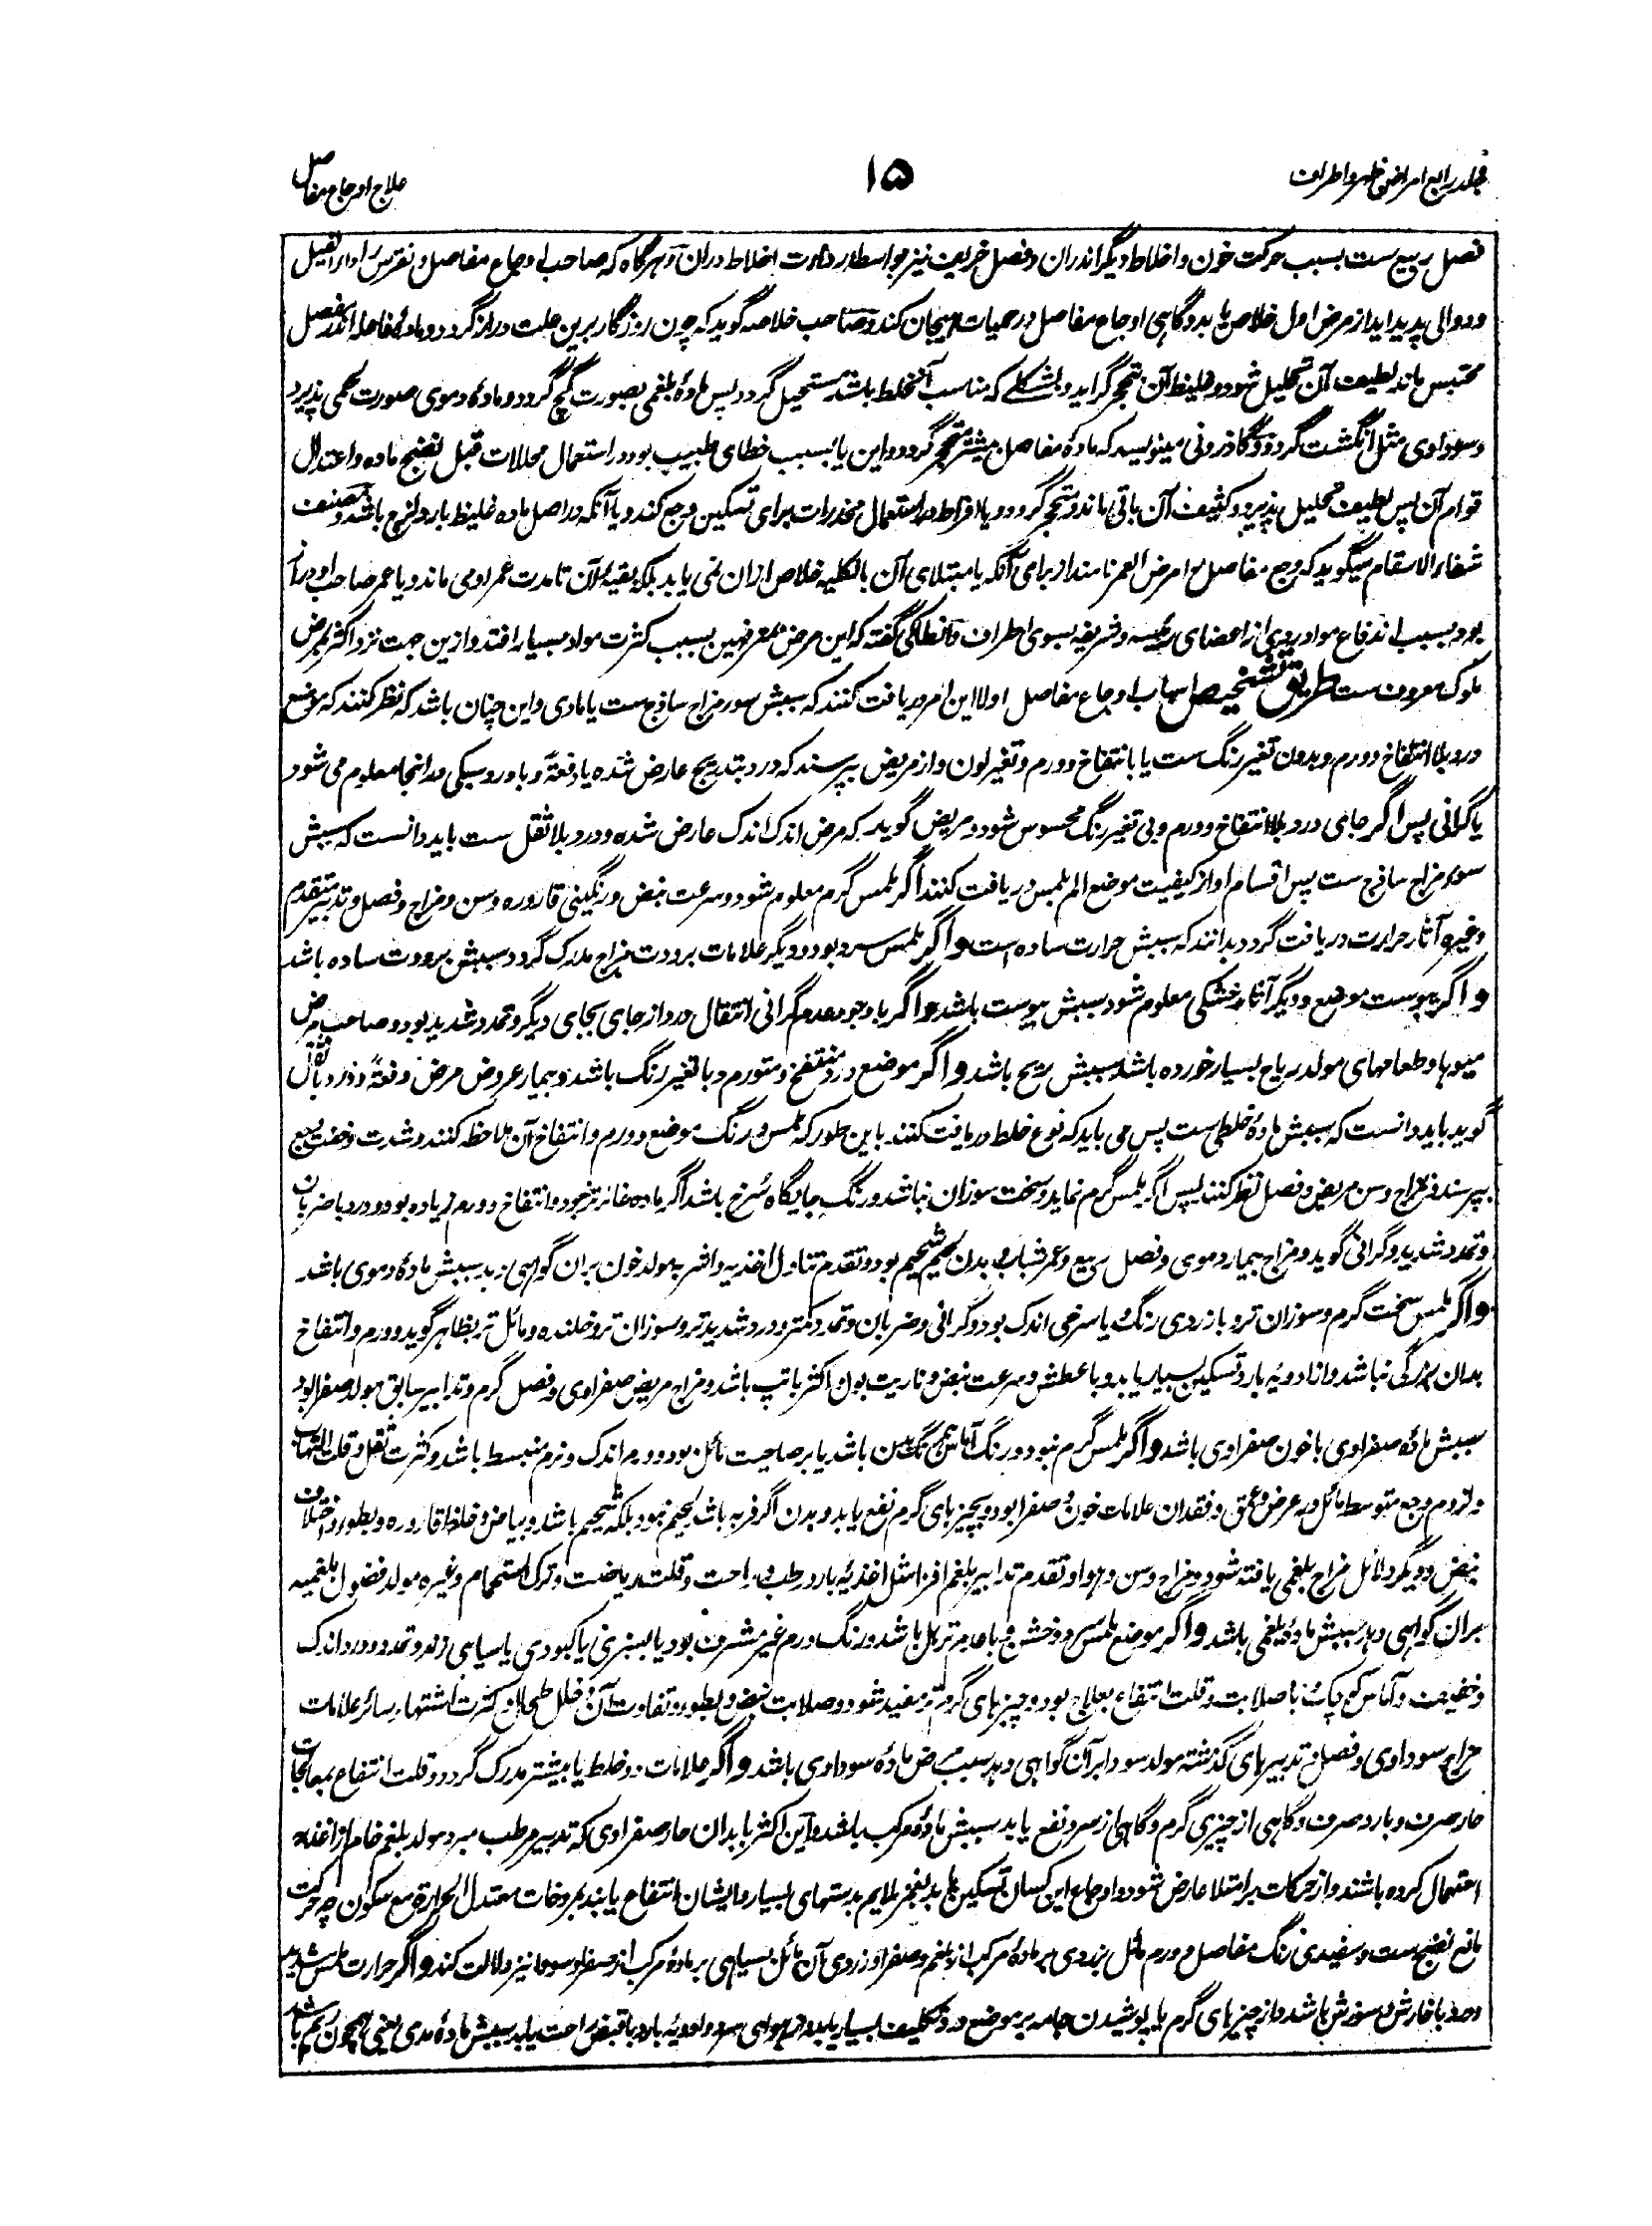 جلد رابع امراض ظهر و اطراف
۱۵
علاج اوجاع مفاصل
فصل ربیع ست بسبب حرکت خون و اخلاط دیگر اندران و فصل خریف نیز بواسطه رداءت اخلاط دران و هرگاه که صاحب اوجاع مفاصل و نقرس را داء الفیل
و دوالی پدید اید از مرض اول خلاص یابد و گاهی اوجاع مفاصل در حمیات هیجان کند و صاحب خلاصه گوید که چون روزگار برین علت دراز گردد و ماده فاعله اندر مفصل
محتبس ماند لطیف آن تحلیل شود و غلیظ آن بتحجر گراید و بشکلی که مناسب آن خلط باشد مستحیل گردد پس ماده بلغمی بصورت گچ گردد و ماده دموی صورت لحمی پذیرد
و سوداوی مثل انگشت گردد و گاذرونی مینویسد که ماده مفاصل بیشتر متحجر گردد و این یا بسبب خطای طبیب بود در استعمال محللات قبل نضج ماده و اعتدال
قوام آن پس لطیف تحلیل پذیرد و کثیف آن باقی ماند و متحجر گردد و یا افراط در استعمال مخدرات برای تسکین وجع کند و یا آنکه در اصل ماده غلیظ بارد لزج باشد و مصنف
شفاء الاسقام میگوید که وجع مفاصل را مرض العمر نامند از برای آنکه یا مبتلای آن بالکلیه خلاص ازان نمی یابد بلکه بقیه آن تا مدت عمر او می ماند و یا عمر صاحب او دراز
بود بسبب اندفاع مواد ردی از اعضای رئیسه و شریفه بسوی اطراف و انطاکی گفته که این مرض مترفهین بسبب کثرت مواد بسیار افتد و ازین جهت نزد اکثر بمرض
ملوک معروف ست طریق تشخیص اسباب اوجاع مفاصل اولا این امر دریافت کنند که سببش سوء مزاج ساذج ست یا مادی و این چنان باشد که نظر کنند که موضع
درد بلا انتفاخ و ورم و بدون تغیر رنگ ست یا با انتفاخ و ورم و تغیر لون و از مریض بپرسند که درد بتدریج عارض شده یا دفعةً و با درد سبکی در انجا معلوم می شود
یا گرانی پس اگر جای درد بلا انتفاخ و ورم و بی تغیر رنگ محسوس شود و مریض گوید که مرض اندک اندک عارض شده و درد بلا ثقل ست باید دانست که سببش
سوء مزاج ساذج ست پس اقسام او از کیفیت موضع الم بلمس دریافت کنند اگر بلمس گرم معلوم شود و سرعت نبض و رنگینی قاروره و سن و مزاج و فصل و تدبیر متقدم
و غیره آثار حرارت دریافت گردد بدانند که سببش حرارت ساده است و اگر بلمس سرد بود و دیگر علامات برودت مزاج مدرک گردد سببش برودت ساده باشد
و اگر یبوست موضع و دیگر آثار خشکی معلوم شود سببش یبوست باشد و اگر باوجود عدم گرانی انتقال درد از جای بجای دیگر و تمدد شدید بود و صاحب مرض
میوها و طعامهای مولد ریاح بسیار خورده باشد سببش ریح باشد و اگر موضع درد منتفخ و متورم و با تغیر رنگ باشد و بیمار عروض مرض دفعةً و درد با ثقل
گوید باید دانست که سببش ماده خلطی ست پس می باید که نوع خلط دریافت کنند باین طور که لمس و رنگ موضع و ورم و انتفاخ آن ملاحظه کنند و شدت و خفت وجع
بپرسند و مزاج و سن مریض و فصل نظر کنند پس اگر بلمس گرم نماید و سخت سوزان نباشد و رنگ جایگاه سرخ باشد اگر ماده غائر نبود و انتفاخ و ورم زیاده بود و درد با ضربان
و تمدد شدید و گرانی گوید و مزاج بیمار دموی و فصل ربیع و عمر شباب و بدن لحیم شحیم بود و تقدم تناول اغذیه و اشربه مولد خون بران گواهی دهد سببش ماده دموی باشد
و اگر بلمس سخت گرم و سوزان تر و با زردی رنگ یا سرخی اندک بود و گرانی و ضربان و تمدد کمتر و درد شدیدتر و سوزان تر و خلنده و مائل تر بظاهر گوید و ورم و انتفاخ
بدان بزرگی نباشد و از ادویه بارد تسکین بسیار یابد و با عطش و سرعت نبض و ناریت بول اکثر با تپ باشد و مزاج مریض صفراوی و فصل گرم و تدابیر سابق مولد صفرا بود
سببش ماده صفراوی با خون صفراوی باشد و اگر بلمس گرم نبود و رنگ آماس همرنگ بدن باشد یا برصاصیت مائل بود و ورم اندک و نرم منبسط باشد و کثرت ثقل و قلت التهاب
و لزوم وجع متوسط مائل در عرض و عمق و فقدان علامات خون و صفرا بود و بچیزهای گرم نفع یابد و بدن اگر فربه باشد لحیم نبود بلکه شحیم باشد و بیاض و غلظ قاروره و بطوء و اختلاف
نبض و دیگر دلائل مزاج بلغمی یافته شود و مزاج و سن و هوا و تقدم تدابیر بلغم افزا مثل اغذیه بارد رطب و راحت و قلت ریاضت و ترک استحمام و غیره مولد فضول بلغمیه
بران گواهی دهد سببش ماده بلغمی باشد و اگر موضع بلمس سرد و خشن و با عدم ترهل باشد و رنگ ورم غیر مشرف بود یا بسبزی یا کبودی یا سیاهی زند و تمدد و درد اندک
و خفیف و آماس کوچک با صلابت و قلت انتفاع بعلاج بود و چیزهای گرم تر مفید شود و صلابت نبض و بطوء و تفاوت آن و خلل طحال و کثرت اشتها و سائر علامات
مزاج سوداوی و فصل و تدبیرهای گذشته مولد سودا بر آن گواهی دهد سبب مرض ماده سوداوی باشد و اگر علامات دو خلط یا بیشتر مدرک گردد و قلت انتفاع بمعالجات
حار صرف و بارد صرف و گاهی از چیزی گرم و گاهی از سرد نفع یابد سببش ماده مرکب باشد و این اکثر بابدان حار صفراوی که تدبیر مرطب مبرد مولد بلغم خام از اغذیه
استعمال کرده باشند و از حرکات بر امتلا عارض شود و اوجاع این کسان تسکین یابد بغمز ملایم بدستهای بسیار و ایشان انتفاع یابند بمروخات معتدل الحرارة مع سکون چه حرکت
مانع نضج ست و سفیدی رنگ مفاصل و ورم مائل بزردی بر ماده مرکب از بلغم و صفرا و زردی آن مائل بسیاهی بر ماده مرکب از صفرا و سودا نیز دلالت کند و اگر حرارت لمس شدید
و درد با خارش و سوزش باشد و از چیزهای گرم یا پوشیدن جامه بر موضع درد تکلیف بسیار یابد و از هوای سرد و ادویه بارد با قبض راحت یابد سببش ماده مدی یعنی همچون ریم باشد